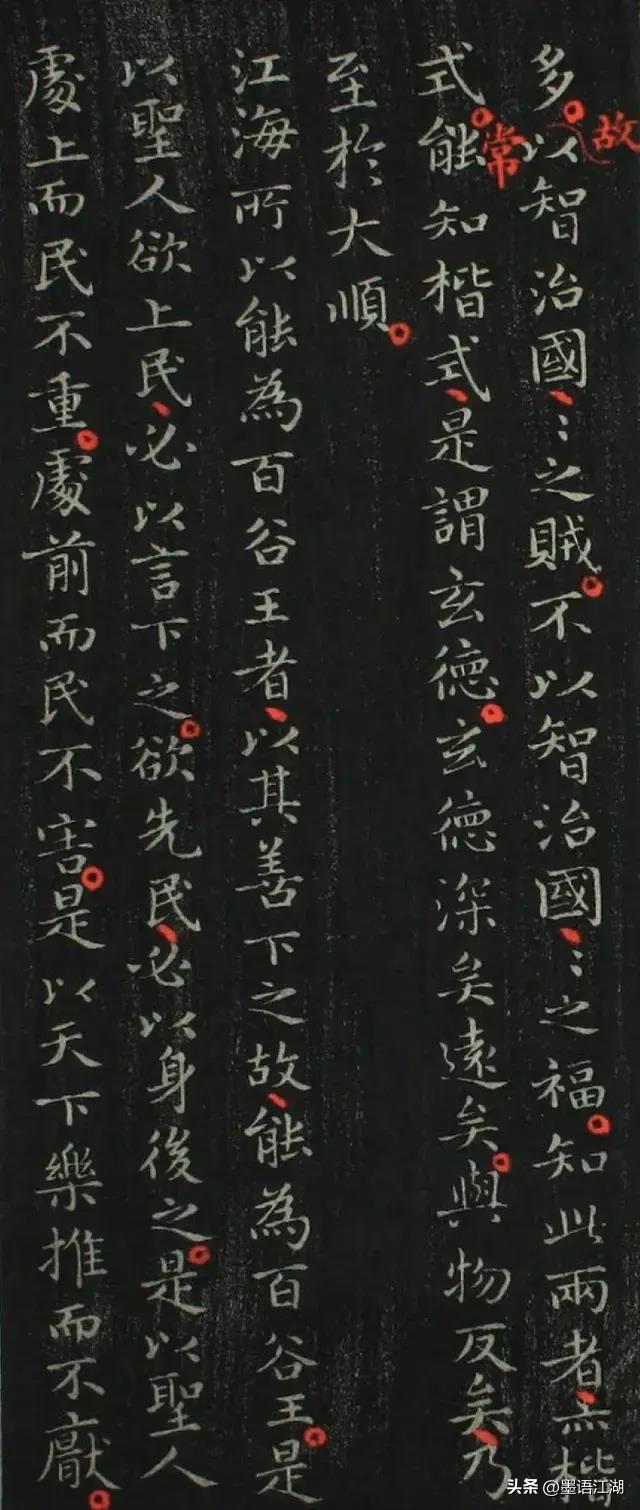 多以智治國〻之賊不以智治國〻之福知此兩者亦楷
故
式能知楷式是謂玄德玄德深矣遠矣與物反矣乃
常
至於大順
江海所以能為百谷王者以其善下之故能為百谷王是
以聖人欲上民必以言下之欲先民必以身後之是以聖人
處上而民不重處前而民不害是以天下樂推而不厭
头条 @墨语江湖